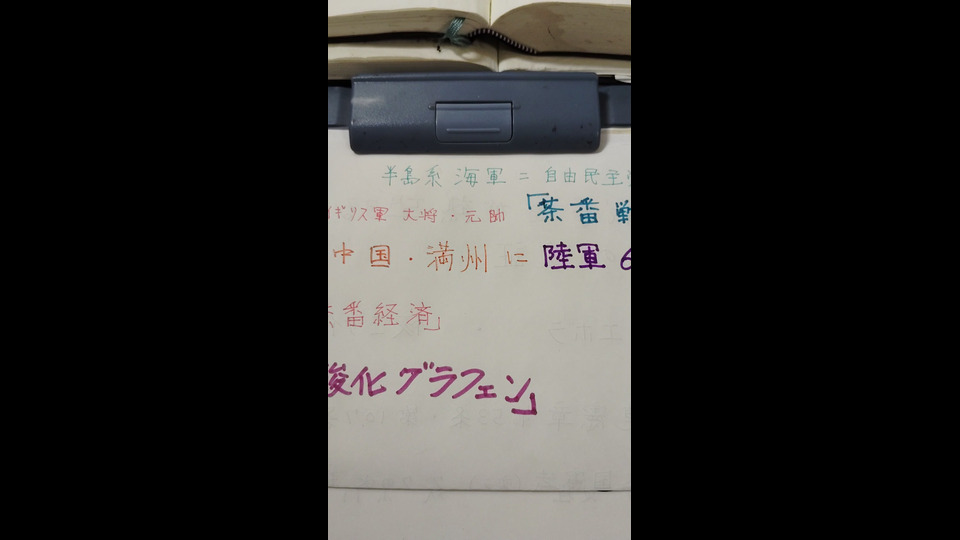 半島系 海軍 = 自由民主
ギリス軍 大将・元帥 「茶番戦
中国・満州に 陸軍 6
番経済」
酸化グラフェン」